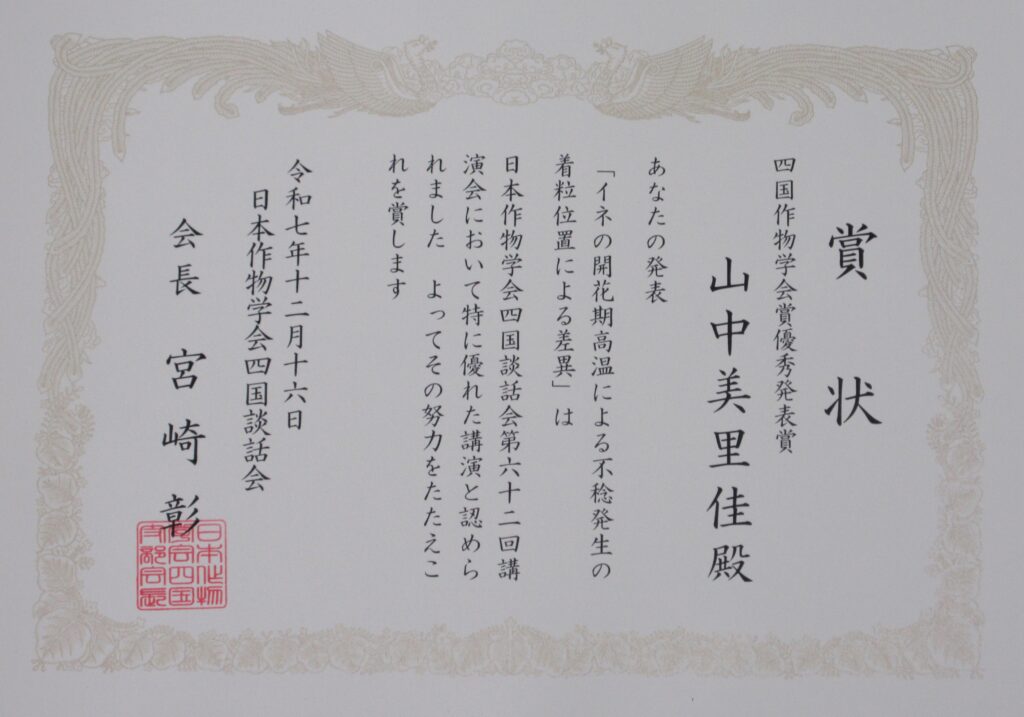 賞状
四国作物学会賞優秀発表賞
山中美里佳殿
あなたの発表
「イネの開花期高温による不稔発生の
着粒位置による差異」は
日本作物学会四国談話会第六十二回講
演会において特に優れた講演と認めら
れました よってその努力をたたえこ
れを賞します
令和七年十二月十六日
日本作物学会四国談話会
会長 宮崎彰